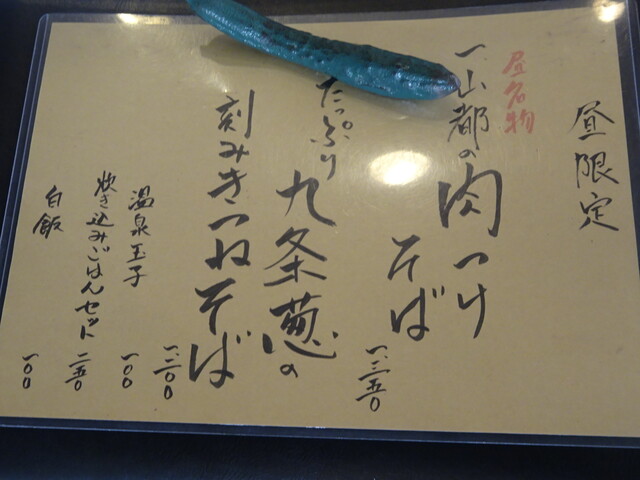 昼限定
昼名物
一山都の肉つけ
そば
一、二五〇
たっぷり
九条葱の
刻みきつねそば
一、二〇〇
温泉玉子
一〇〇
炊き込みごはんセット
二五〇
白飯
一〇〇